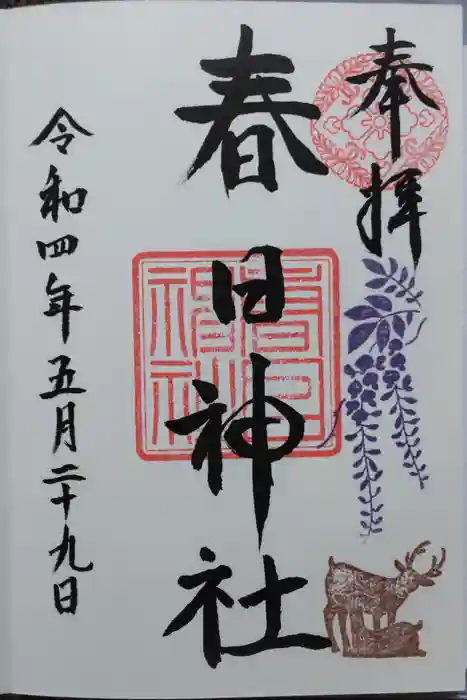 奉拝
春日神社
春日神社
令和四年五月二十九日